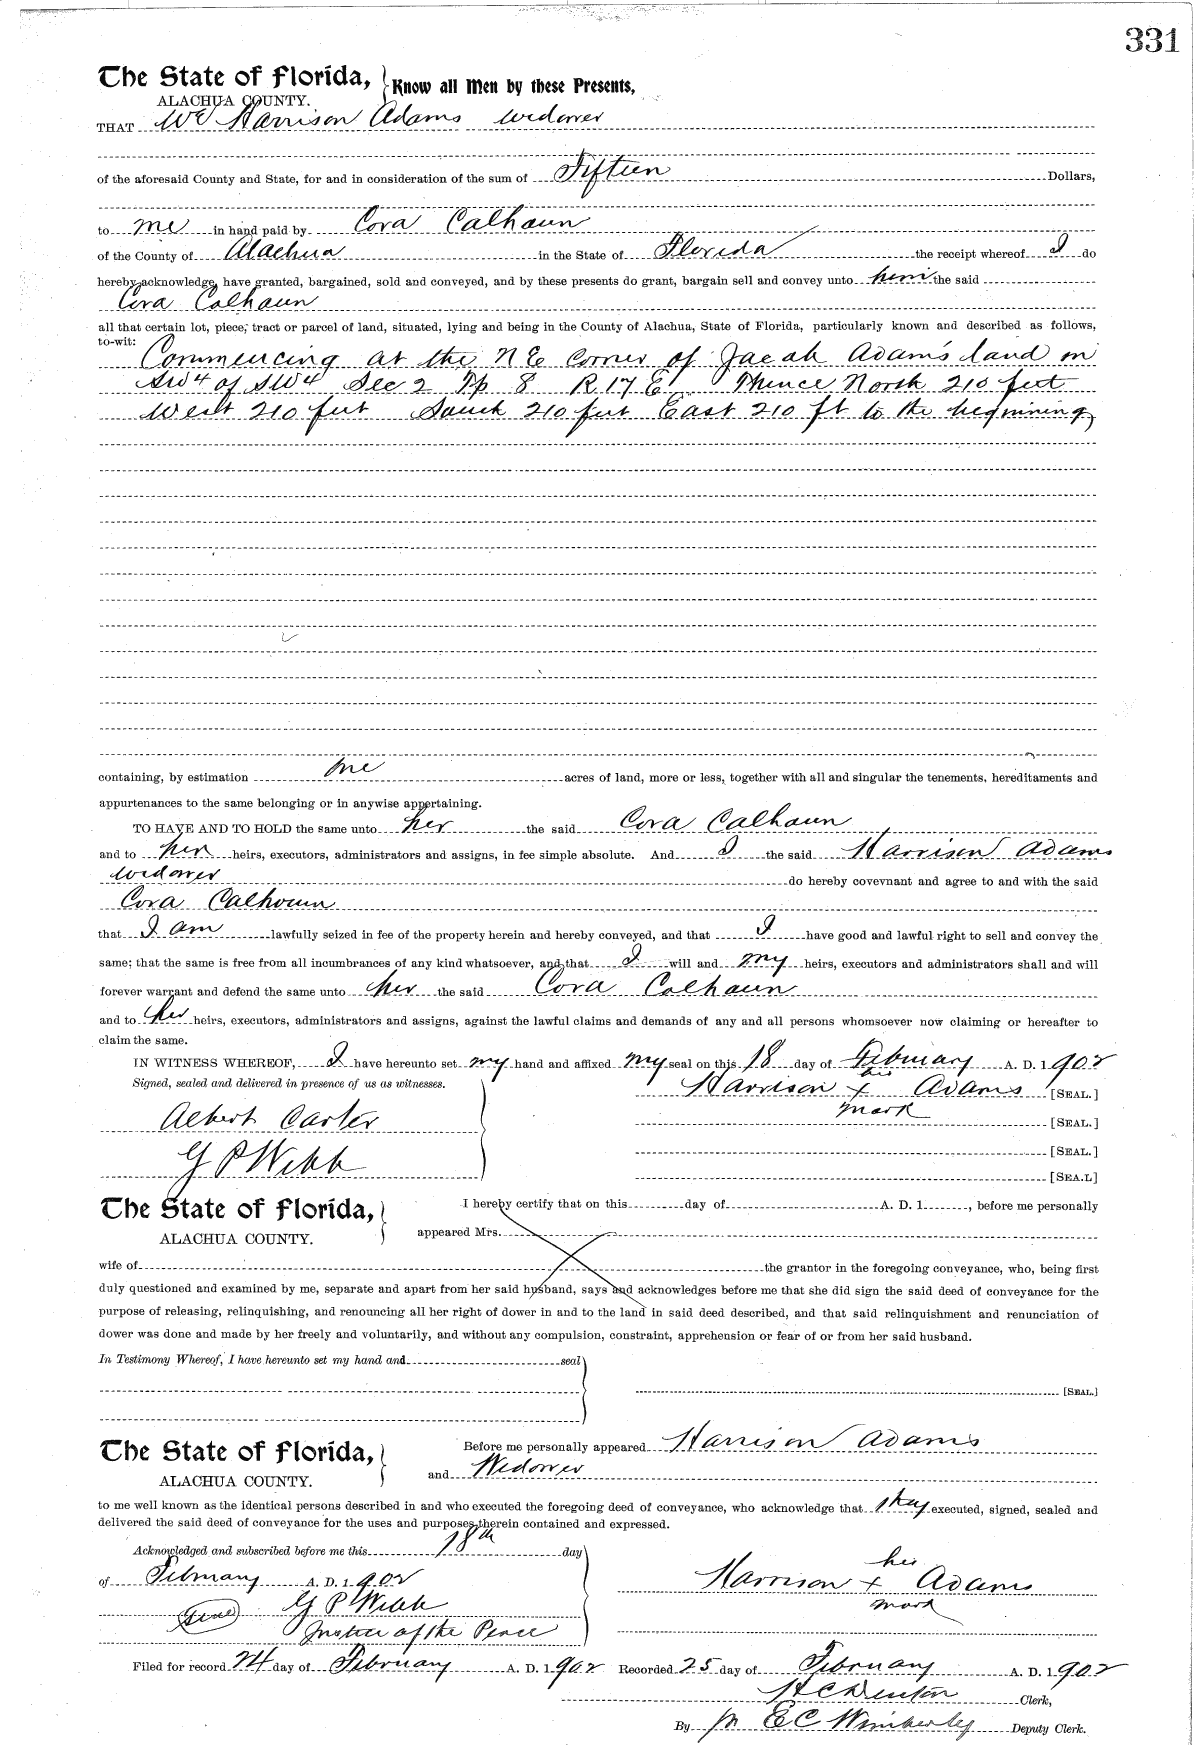 331
The State of Florida, Know all Men by these Presents,
ALACHUA COUNTY.
THAT We Harrison Adams widower
of the aforesaid County and State, for and in consideration of the sum of Fifteen Dollars,
to me in hand paid by Cora Calhoun
of the County of Alachua in the State of Florida the receipt whereof I do
hereby acknowledge, have granted, bargained, sold and conveyed, and by these presents do grant, bargain sell and convey unto him the said
Cora Calhoun
all that certain lot, piece, tract or parcel of land, situated, lying and being in the County of Alachua, State of Florida, particularly known and described as follows,
to-wit:
Commencing at the NE corner of Jacob Adams land on
SW4 of SW4 Sec 2 Tp 8 R 17 E Thence North 210 feet
West 210 feet South 210 feet East 210 ft to the beginning
containing, by estimation one acres of land, more or less, together with all and singular the tenements, hereditaments and
appurtenances to the same belonging or in anywise appertaining.
TO HAVE AND TO HOLD the same unto her the said Cora Calhoun
and to her heirs, executors, administrators and assigns, in fee simple absolute. And I the said Harrison Adams
widower do hereby covevnant and agree to and with the said
Cora Calhoun
that I am lawfully seized in fee of the property herein and hereby conveyed, and that I have good and lawful right to sell and convey the
same; that the same is free from all incumbrances of any kind whatsoever, and that I will and my heirs, executors and administrators shall and will
forever warrant and defend the same unto her the said Cora Calhoun
and to her heirs, executors, administrators and assigns, against the lawful claims and demands of any and all persons whomsoever now claiming or hereafter to
claim the same.
IN WITNESS WHEREOF, I have hereunto set my hand and affixed my seal on this 18 day of February A. D. 1902
Signed, sealed and delivered in presence of us as witnesses.
his
Harrison x Adams [SEAL.]
mark
Albert Carter [SEAL.]
[SEAL.]
G P Webb [SEA.L]
The State of Florida, I hereby certify that on this day of A. D. 1 , before me personally
ALACHUA COUNTY. appeared Mrs.
wife of the grantor in the foregoing conveyance, who, being first
duly questioned and examined by me, separate and apart from her said husband, says and acknowledges before me that she did sign the said deed of conveyance for the
purpose of releasing, relinquishing, and renouncing all her right of dower in and to the land in said deed described, and that said relinquishment and renunciation of
dower was done and made by her freely and voluntarily, and without any compulsion, constraint, apprehension or fear of or from her said husband.
In Testimony Whereof, I have hereunto set my hand and seal
[SEAL.]
The State of Florida, Before me personally appeared Harrison Adams
ALACHUA COUNTY. and Widower
to me well known as the identical persons described in and who executed the foregoing deed of conveyance, who acknowledge that they executed, signed, sealed and
delivered the said deed of conveyance for the uses and purposes therein contained and expressed.
Acknowledged and subscribed before me this 18th day
of February A. D. 1902
his
Harrison x Adams
mark
(Seal) G P Webb
Justice of the Peace
Filed for record 24 day of February A. D. 1902 Recorded 25 day of February A. D. 1902
H C Denton Clerk,
By pr E C Wimberly Deputy Clerk.